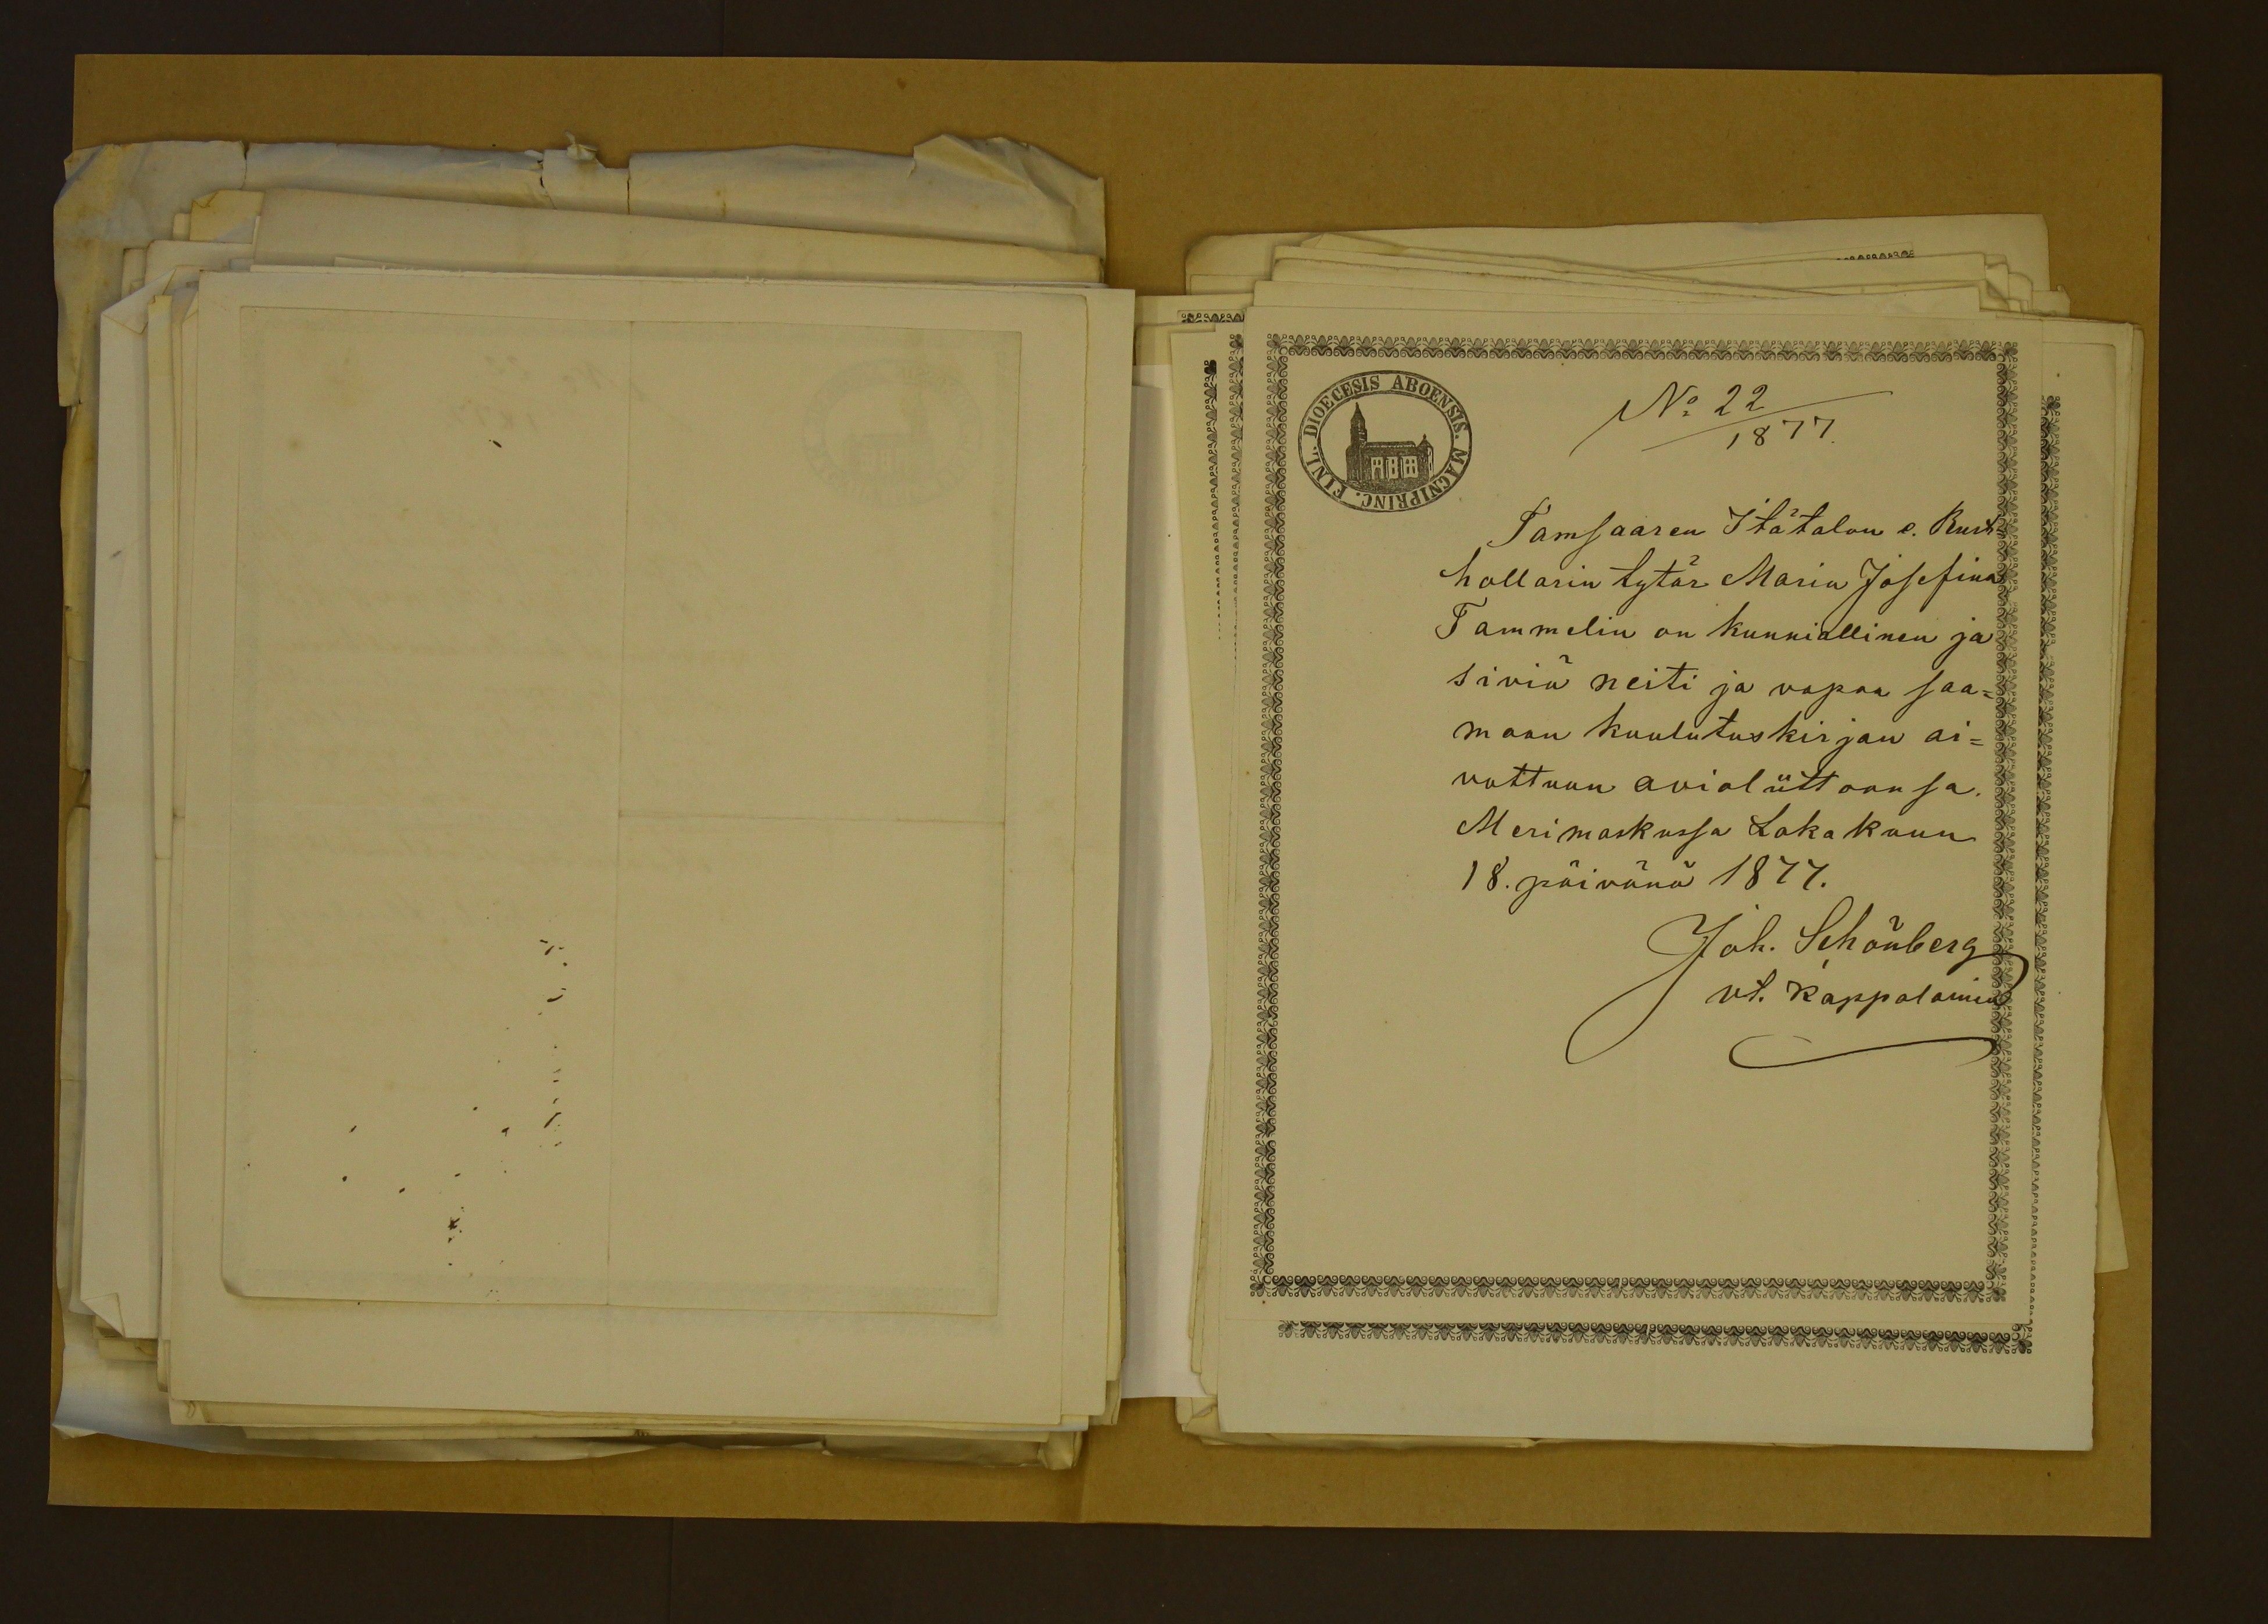 DIOECESIS ABOENSIS. MAGNIPRINC. FINL.
No 22
1877.
Tamsaaren Itätalon e. Rust-
hollarin tytär Maria Josefina
Tammelin on kunniallinen ja
siviä neiti ja vapaa saa=
maan kuulutuskirjan ai=
vottuun avioliittoonsa.
Merimaskussa Lokakuun
18. päivänä 1877.
Joh. Schönberg
vt. Kappalainen